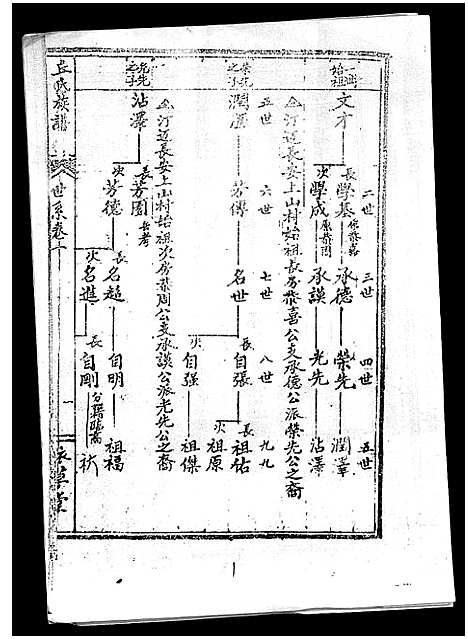 一世始祖
文才
二世
長 學基
次 學成
三世
承德
承謨
四世
榮先
光先
五世
潤澤
沾澤
汀邁長安上山村始祖長房恭喜公支承德公派榮先公之裔
榮先之子
五世
潤澤
六世
芳傳
七世
名世
八世
長 自張
次 自强
九世
長 祖佑
次 祖原
祖傑
汀邁長安上山村始祖次房恭周公支承謨公派光先公之裔
光先之子
沾澤
長 芳園 長考
次 芳德
長 名超
次 名進
自明
長 自剛
祖福
丘氏族譜
世系卷
一
敦草堂